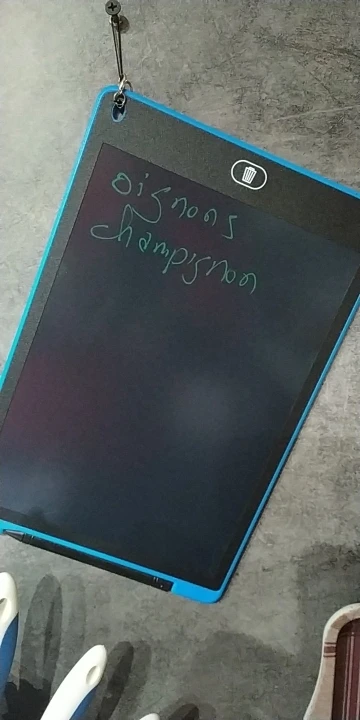 oignons
champignon